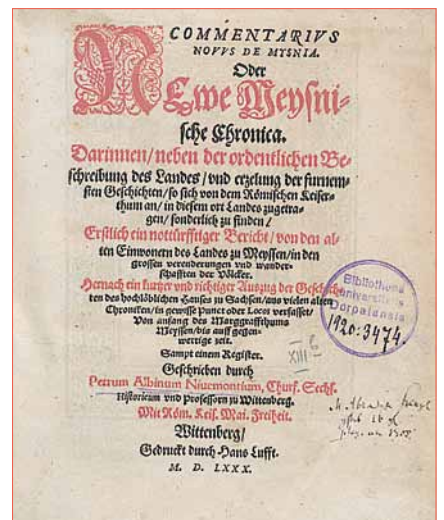 COMMENTARIVS
NOVVS DE MYSNIA.
Oder
Newe Meysni-
sche Chronica.
Darinnen/ neben der ordentlichen Be-
schreibung des Landes/ vnd erzelung der furnem-
sten Geschichten/ so sich von dem Römischen Keiser-
thum an/ in diesem ort Landes zugetra-
gen/ sonderlich zu finden/
Erstlich ein nottürfftiger Bericht/ von den al-
ten Einwonern des Landes zu Meyssen/ in den
grossen verenderungen vnd wander-
schafften der Völcker.
Hernach ein kurtzer vnd richtiger Auszug der Geschich-
ten des hochlöblichen Hauses zu Sachsen/ aus vielen alten
Chroniken/ in gewisse punct oder Locos verfasset/
Von anfang des Marggraffthums
Meyssen/ bis auff gegen-
wertige zeit.
Sampt einem Register.
Geschrieben durch
Petrum Albinum Niuemontium, Churf. Sechs.
Historicum vnd Professorn zu Wittenberg.
Mit Röm. Keis. Mai. Freiheit.
Wittenberg/
Gedruckt durch Hans Lufft.
M. D. LXXX.
Bibliotheca
Universitatis
Dorpatensis
1920:3474.
XIII 6